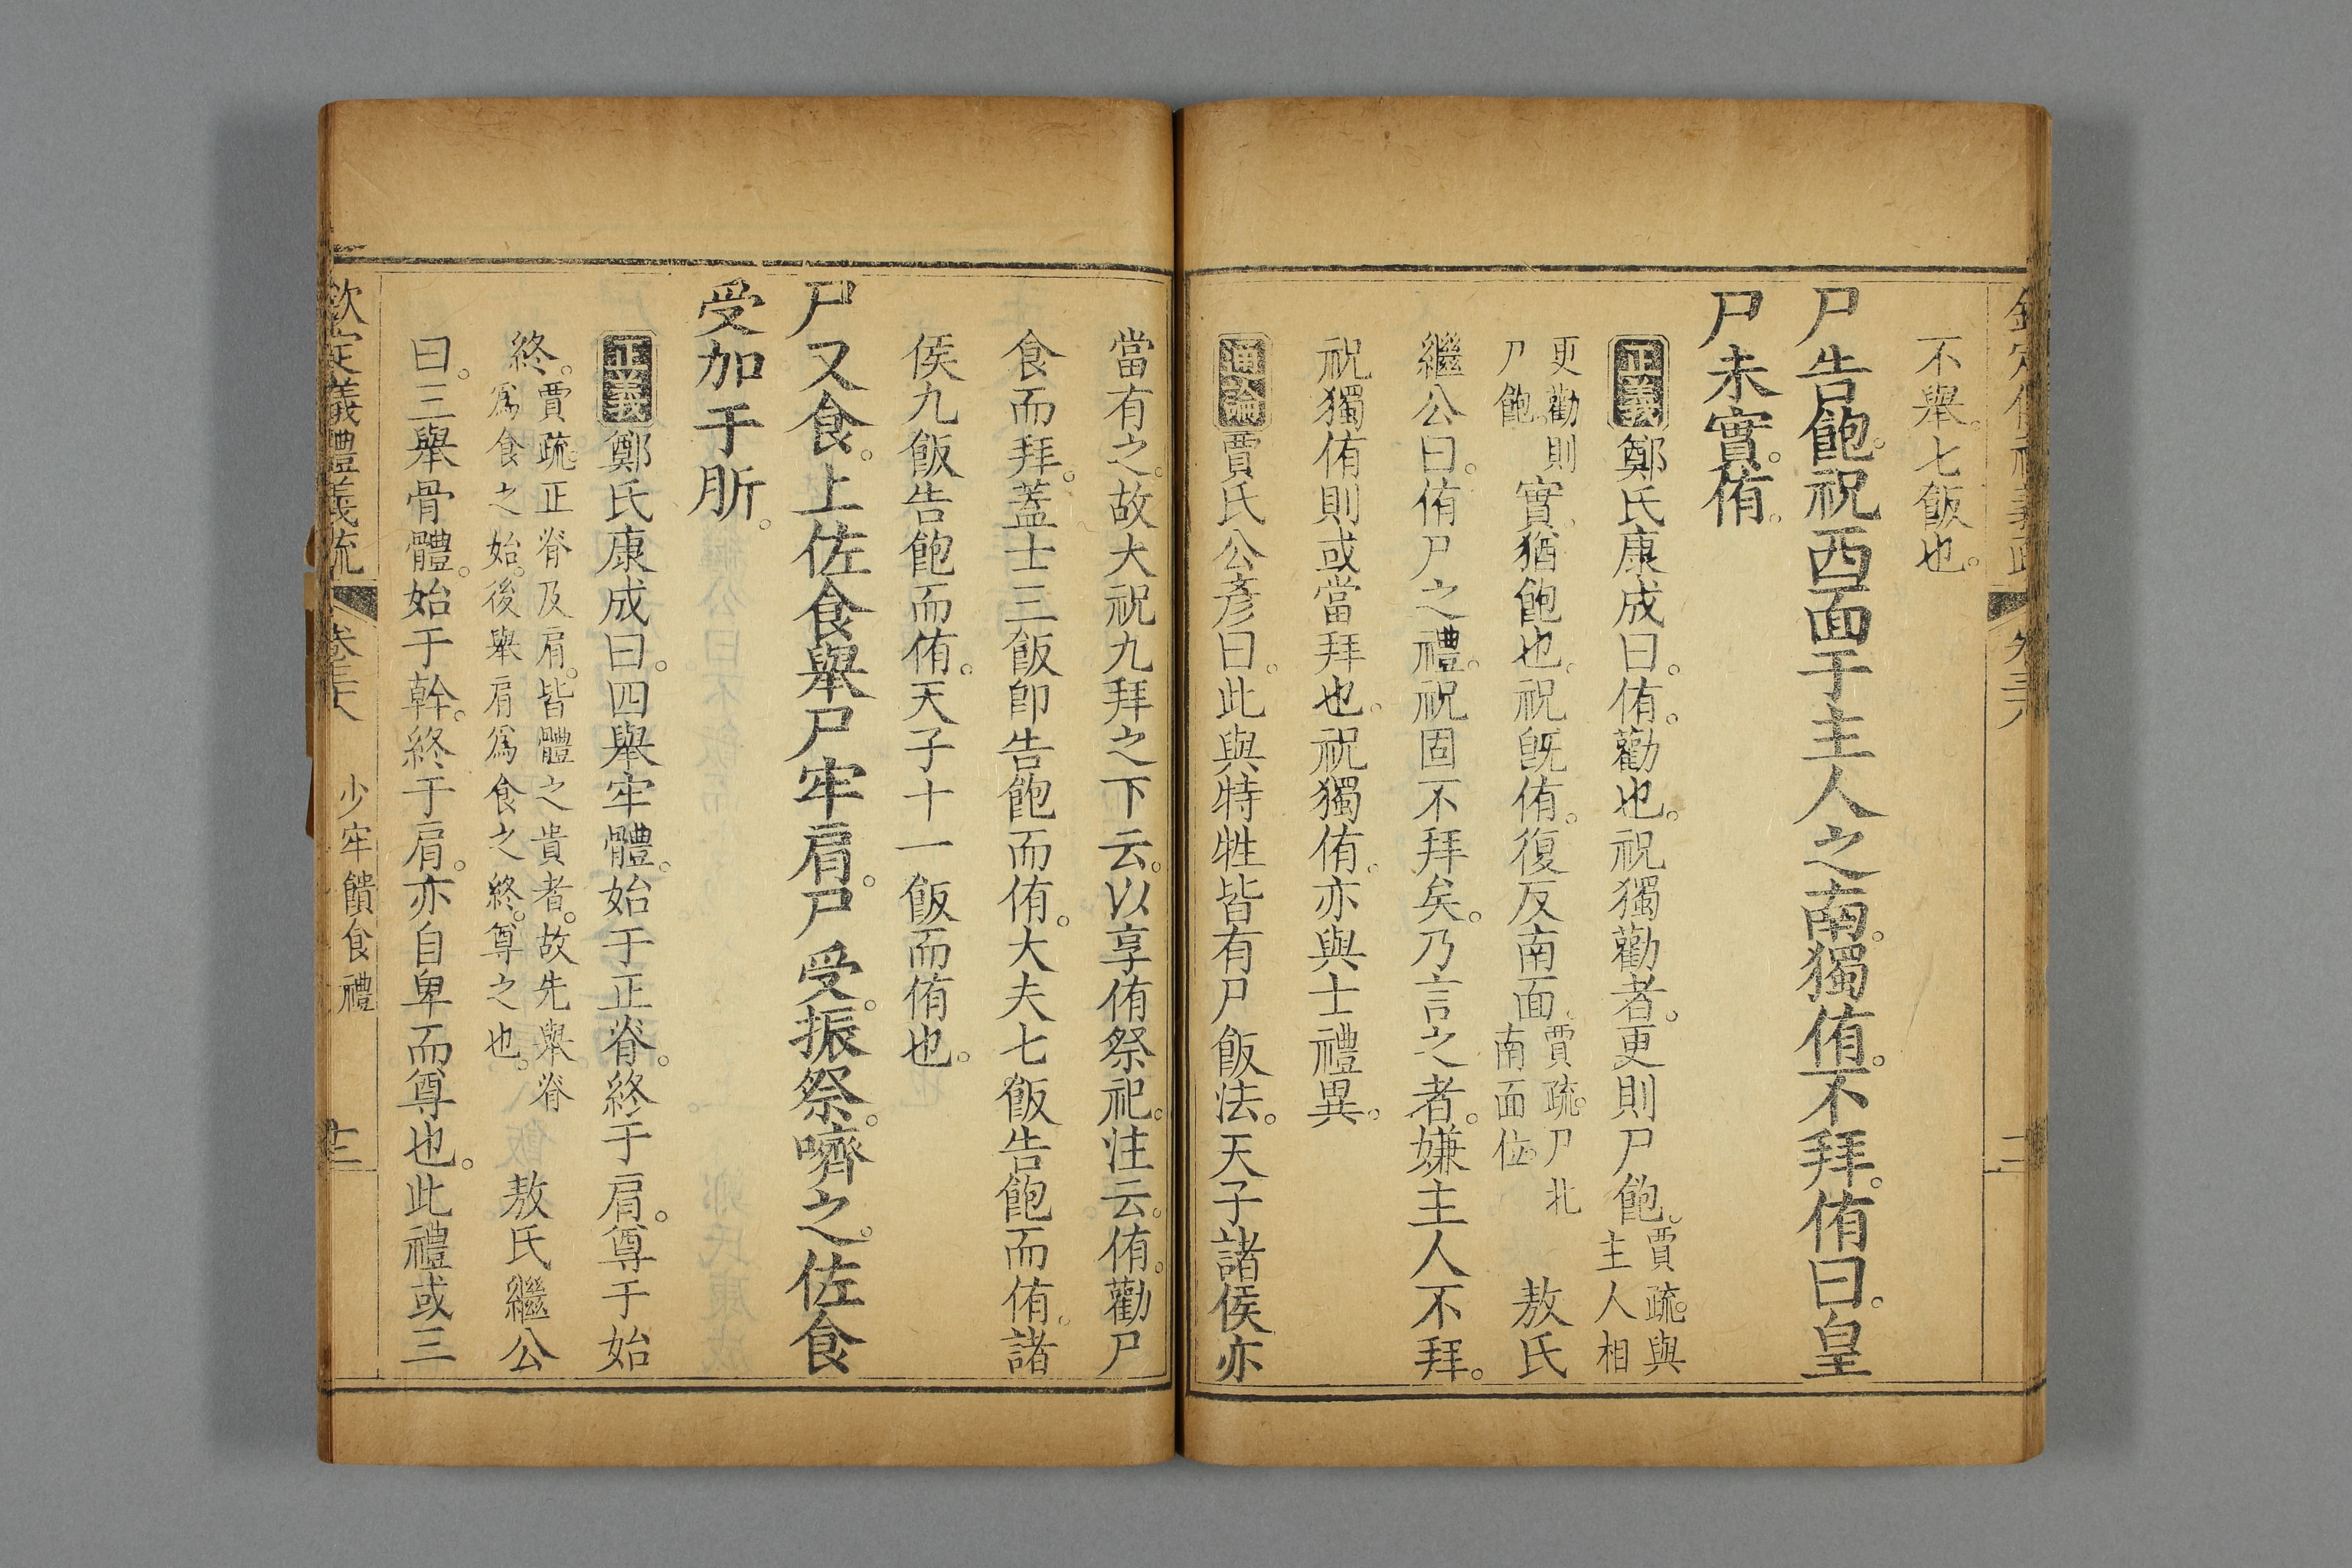 不舉。七飯也。
尸告飽。祝西面于主人之南。獨侑。不拜。侑曰。皇
尸未實。侑。
正義 鄭氏康成曰。侑。勸也。祝獨勸者。更則尸飽。賈疏。與主人相
更勸則尸飽。實。猶飽也。祝旣侑。復反南面。賈疏。尸北南面位。敖氏
繼公曰。侑尸之禮。祝固不拜矣。乃言之者。嫌主人不拜。
祝獨侑則或當拜也。祝獨侑。亦與士禮異。
通論 賈氏公彥曰。此與特牲皆有尸飯法。天子諸侯亦
當有之。故大祝九拜之下云。以享侑祭祀。注云。侑。勸尸
食而拜。蓋士三飯卽告飽而侑。大夫七飯告飽而侑。諸
侯九飯告飽而侑。天子十一飯而侑也。
尸又食。上佐食舉尸牢肩。尸受。振祭。嚌之。佐食
受加于肵。
正義 鄭氏康成曰。四舉牢體。始于正脊。終于肩。尊于始
終。賈疏。正脊及肩。皆體之貴者。故先舉。脊爲食之始。後舉肩爲食之終。尊之也。敖氏繼公
曰。三舉骨體。始于幹。終于肩。亦自卑而尊也。此禮或三
欽定儀禮義疏 卷三十八 少牢饋食禮 十二